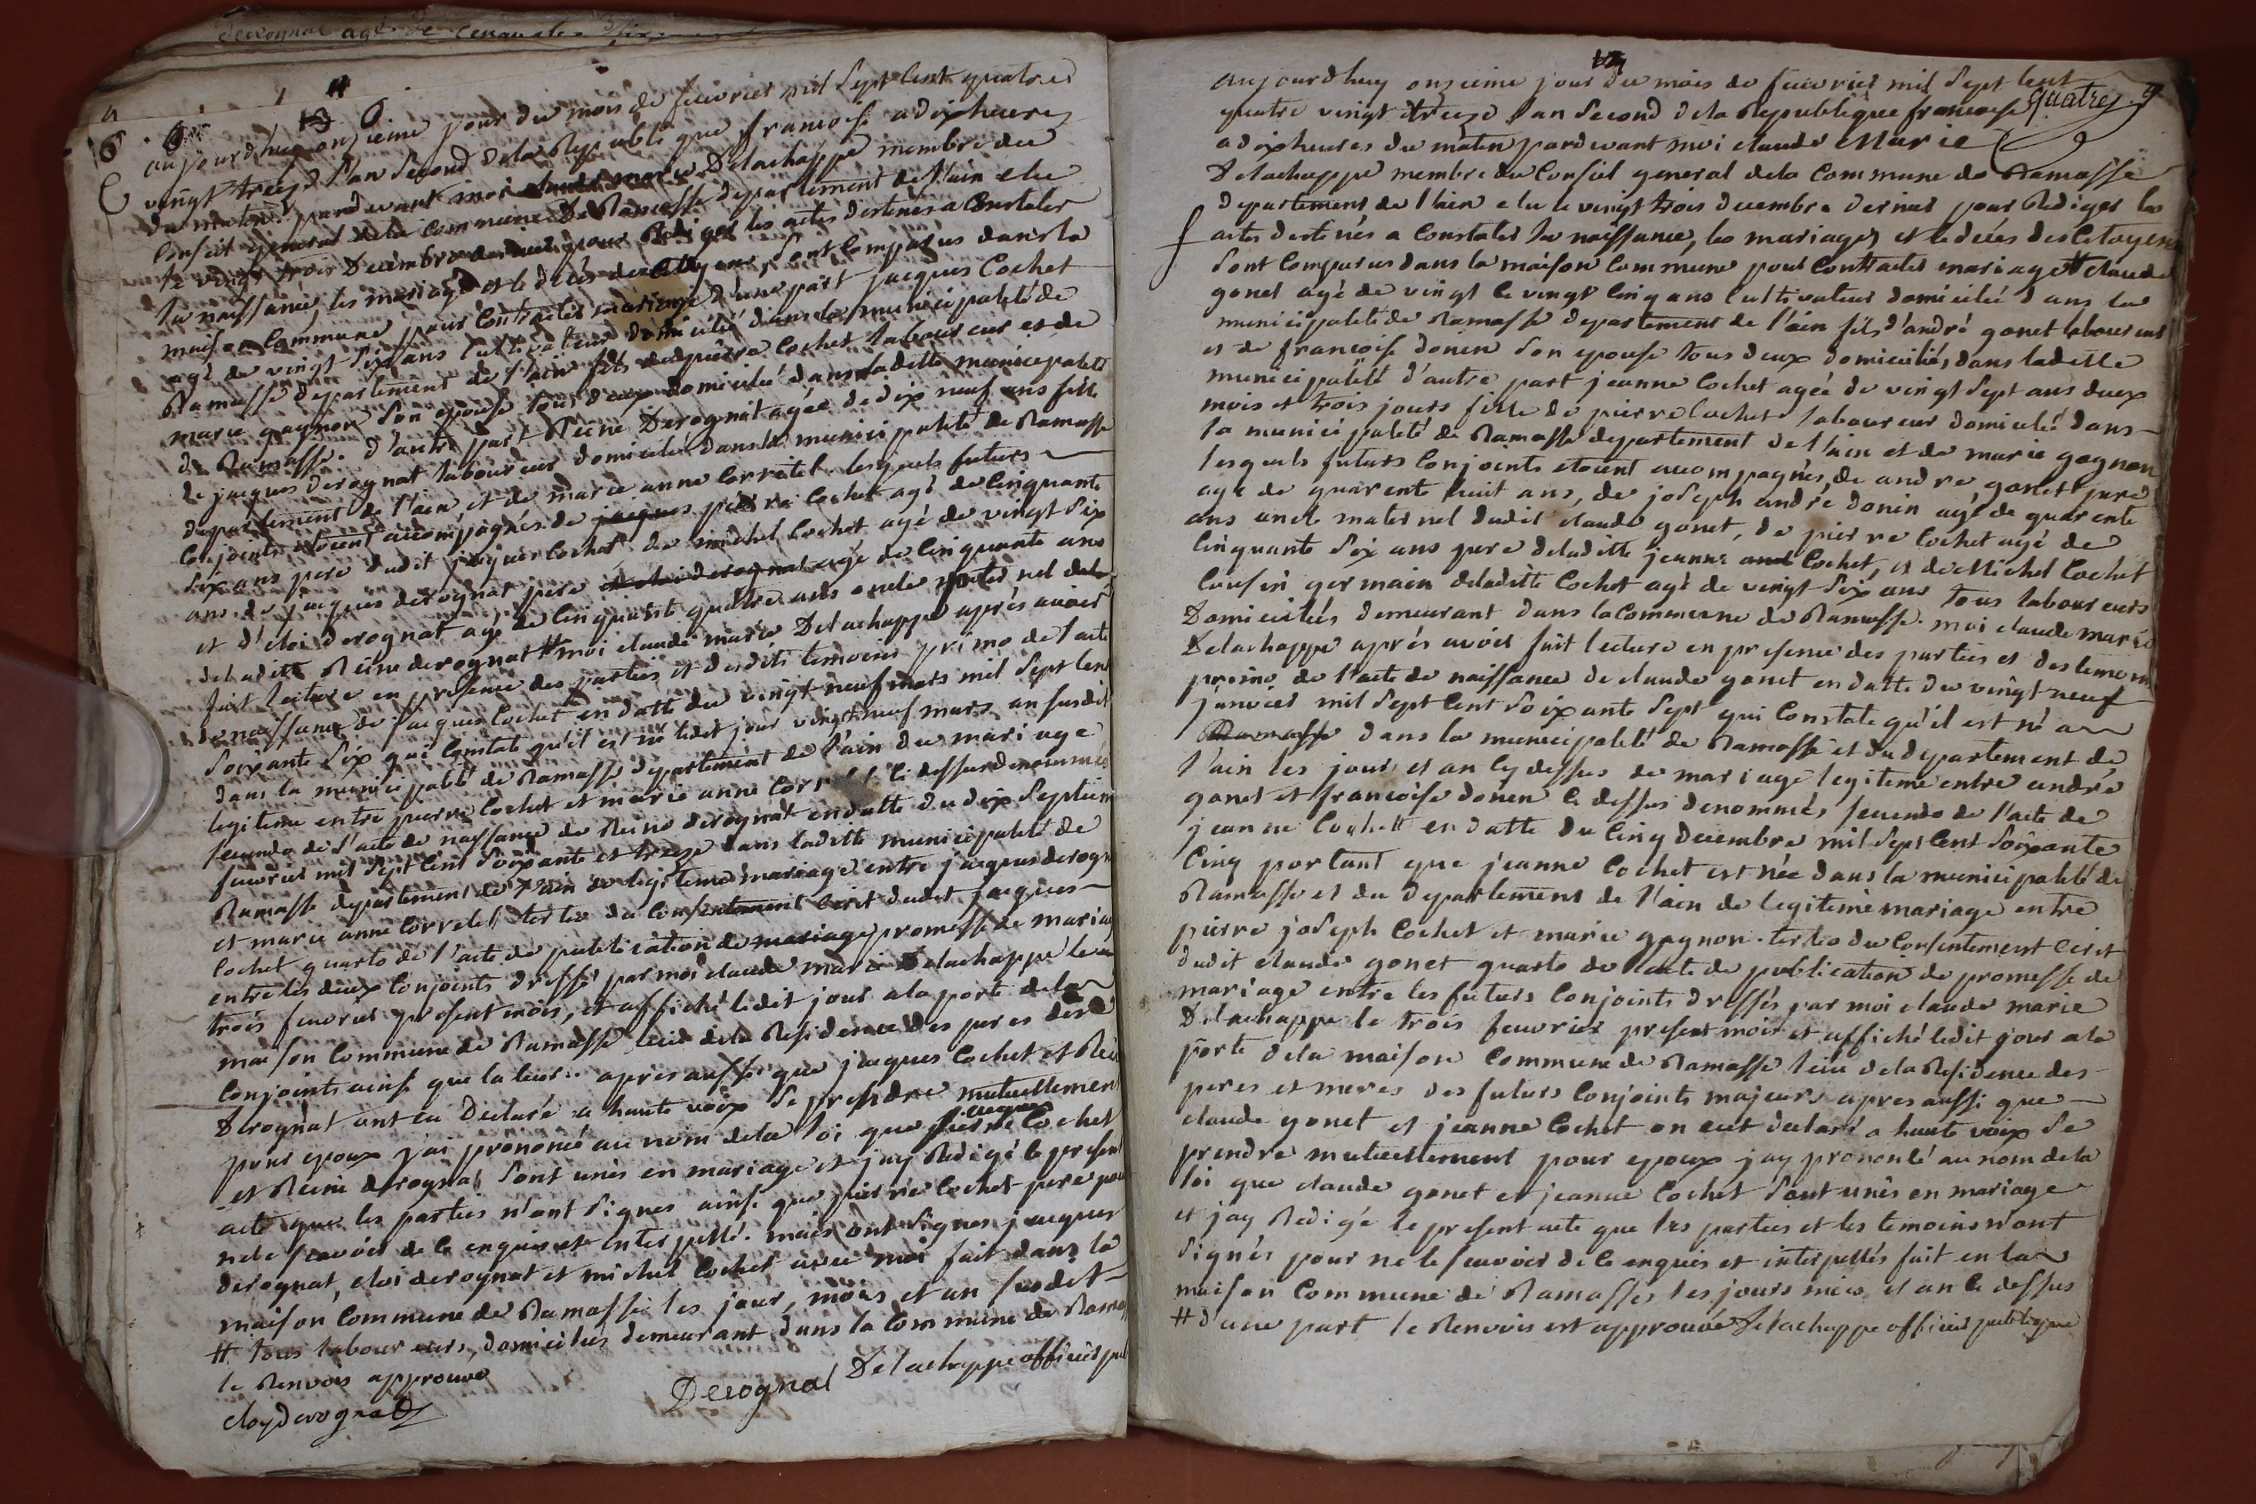 aujourdhuy onzieme jour du mois de feuvrier mil sept cent quatre
vingt treize l'an second dela Republique francoise a dix heures
du matin pardevant moi claude marie Delachappe membre du
Conseil general dela commune de Ramasse departement de l'ain elu
le vingt trois Decembre dernier pour Rediger les actes destinés a Constater
la naissance, les mariages et le décés des Citoyens, sont comparus dans la
maison Commune pour Contracter mariage d'une part jacques Cochet
agé de vingt six ans cultivateur domicilié dans la municipalité de
Ramasse departement de l'ain fils de pierre Cochet laboureur et de
marie gagnon son epouse tous deux domicilié dans ladite municipalité
de Ramasse. d'autre part Reine Derognat agée de dix neuf ans fille
de jacques derognat laboureur domicilié dans la municipalité de Ramasse
departement de l'ain et de marie anne Corretel lesquels futurs
Conjoints etoient accompagnés de jacques pierre Cochet agé de Cinquante
six ans pere dudit jacques Cochet de michel Cochet agé de vingt six
ans de jacques derognat pere agé de Cinquante ans
et d'eloi derognat agé de Cinquante quatre ans oncle paternel dela
deladitte Reine derognat # moi claude marie Delachappe aprés avoir
fait lecture en presence des parties et desdits temoins primo de l'acte
de naissance de jacques Cochet en datte du vingt neuf mars mil sept cent
soixante six qui Constate qu'il est né ledit jour vingt neuf mars an susdit
dans la municipalité de Ramasse departement de l'ain du mariage
legitime entre pierre Cochet et marie anne Ci dessus denommés
secundo de l'acte de naissance de Reine derognat en datte du dix septieme
feuvrier mil sept Cent soixante et treize dans laditte municipalité de
Ramasse departement de l'ain de legitime mariage entre jacques derognat
et marie anne Corretel tertio du Consentement ecrit dudit jacques
Cochet quarto de l'acte de publication de mariage promesse de mariage
entre les deux Conjoints dressé par moi claude marie Delachappe le
trois feuvrier present mois, et affiché ledit jour a la porte dela
maison Commune de Ramasse de la Residence des peres des
Conjoints ainsi que la leur.. apres aussi que jacques Cochet et Reine
Derognat ont eu Declaré a haute voix se prendre mutuellement
pour epoux j'ai prononcé au nom dela loi que pierre jacques Cochet
et Reine derognat sont unis en mariage et jay Redigé le present
acte que les parties n'ont signés ainsi que pierre Cochet pere pour
ne le scavoir de ce enquis et interpellé. mais ont signés jacques
derognat, eloi derognat et michel Cochet avec moi fait dans la
maison Commune de Ramasse les jour, mois et an susdit
# tous laboureurs, domiciliés demeurant dans la Commune de Ramasse
le Renvois approuvé
eloy derognat Derognat Delachappe officier
aujourdhuy onzieme jour du mois de feuvrier mil sept cent
quatre vingt treize l'an second dela Republique francoise quatre
a dix heures du matin pardevant moi claude Marie
Delachappe membre du Conseil general dela Commune de Ramasse
departement de l'ain elu le vingt trois decembre dernier pour Rediger les
actes destinés a Constater la naissance, les mariages et le décés des Citoyens
sont Comparus dans la maison Commune pour Contracter mariage # claude
gonet agé de vingt le vingt Cinq ans Cultivateur domicilié dans la
municipalité de Ramasse departement de l'ain fils d'andré gonet laboureur
et de francoise donin son epouse tous deux domiciliés, dans ladite
municipalité d'autre part jeanne Cochet agée de vingt sept ans deux
mois et trois jours fille de pierre Cochet laboureur domicilié dans
la municipalité de Ramasse departement de l'ain et de marie gagnon
lesquels futurs Conjoints etoient accompagnés, de andré gonet pere
agé de quarente huit ans, de joseph andré donin agé de quarente
ans oncle maternel dudit claude gonet, de pierre Cochet agé de
Cinquante six ans pere deladitte jeanne Cochet, et de Michel Cochet
Cousin germain deladitte Cochet agé de vingt six ans tous laboureurs
Domiciliés demeurant dans la Commune de Ramasse. moi claude marie
Delachappe aprés avoir fait lecture en presence des parties et des temoins
primo de l'acte de naissance de claude gonet en datte du vingt neuf
janvier mil sept Cent soixante sept qui Constate qu'il est né a
Ramasse dans la municipalité de Ramasse et du departement de
l'ain les jour et an Cy dessus de mariage legitime entre andré
gonet et francoise donin Ci dessus denommés, secundo de l'acte de
jeanne Cochet en datte du Cinq decembre mil sept Cent soixante
Cinq portant que jeanne Cochet est née dans la municipalité de
Ramasse et du departement de l'ain de legitime mariage entre
pierre joseph Cochet et marie gagnon. tertio du Consentement ecrit
dudit claude gonet quarto de l'acte de publication de promesse de
mariage entre les futurs Conjoints dressés par moi claude marie
Delachappe le trois feuvrier present mois et affiché ledit jour a la
porte dela maison Commune de Ramasse lieu dela Residence des
peres et meres des futurs Conjoints majeurs apres aussi que
claude gonet et jeanne Cochet on eut declaré a haute voix se
prendre mutuellement pour epoux jay prononcé au nom dela
loi que claude gonet et jeanne Cochet sont unis en mariage
et jay Redigé le present acte que les parties et les temoins n'ont
signés pour ne le scavoir de ce enquis et interpellés fait en la
maison Commune de Ramasse, les jours mois et an Ci dessus
# d'une part le Renvois est approuvé Delachappe officier publique